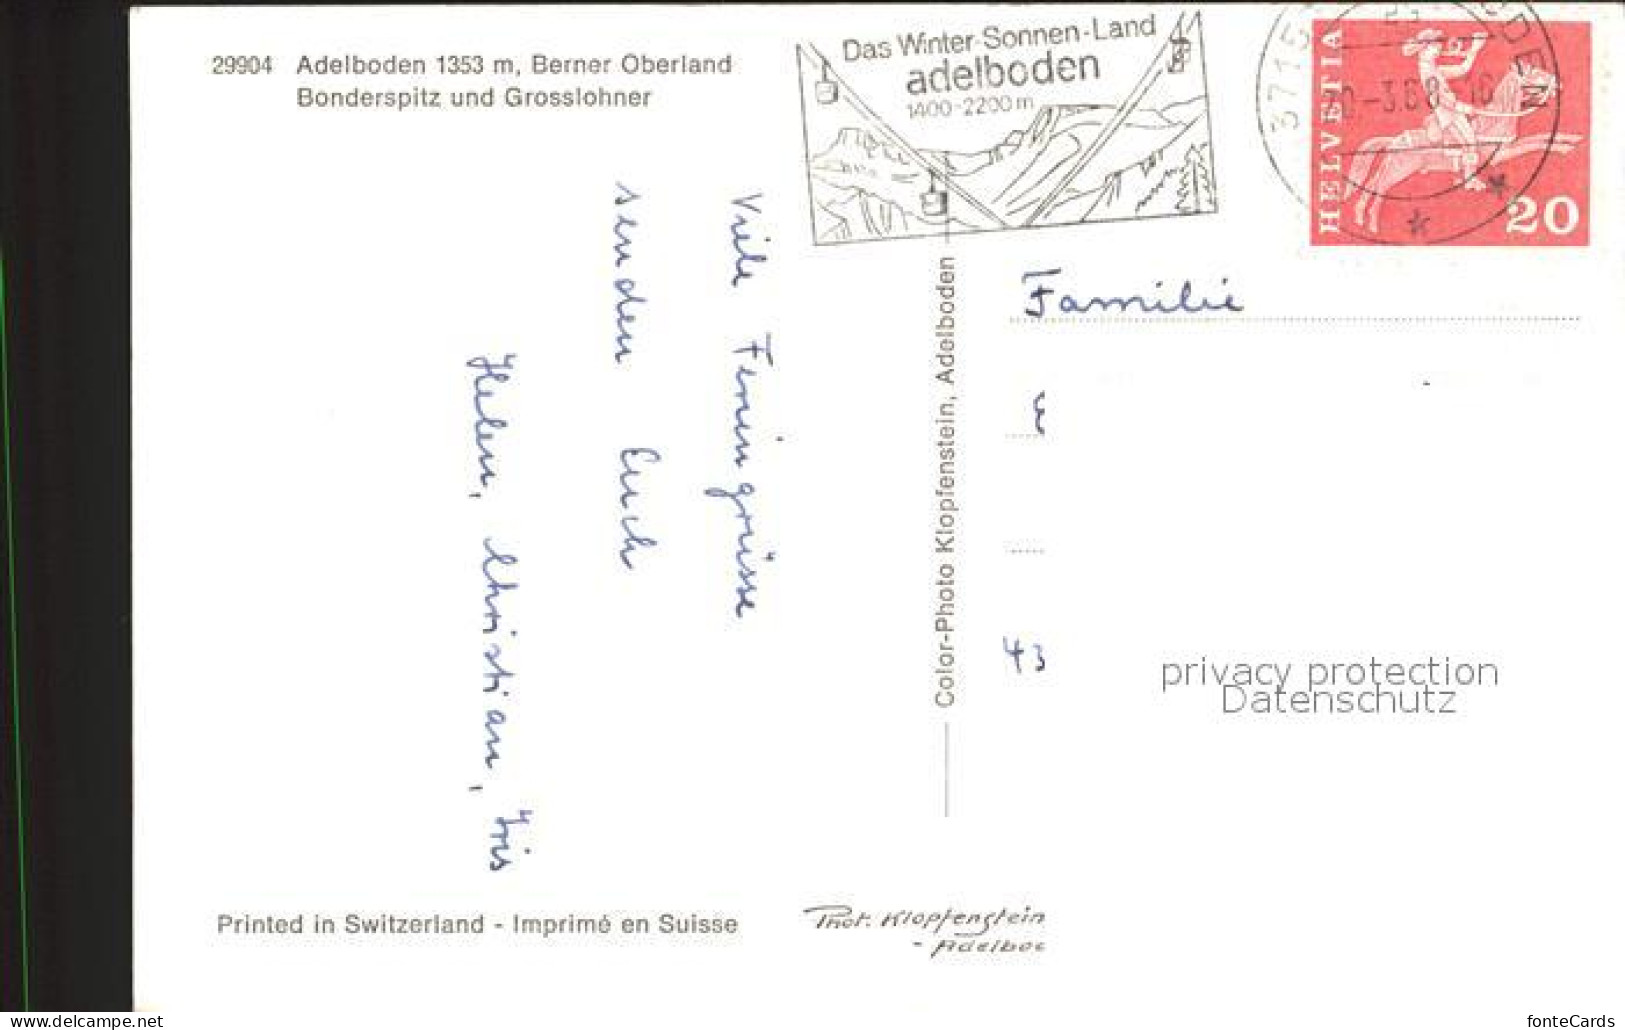 29904 Adelboden 1353 m, Berner Oberland
Bonderspitz und Grosslohner
Das Winter-Sonnen-Land
adelboden
1400-2200 m
HELVETIA
20
Viele Feriengrüsse
senden Euch
Helen, Christian, Iris
Color-Photo Klopfenstein, Adelboden
Familie
43
privacy protection
Datenschutz
Printed in Switzerland - Imprimé en Suisse
Phot. Klopfenstein
- Adelboc
www.delcampe.net
fonteCards